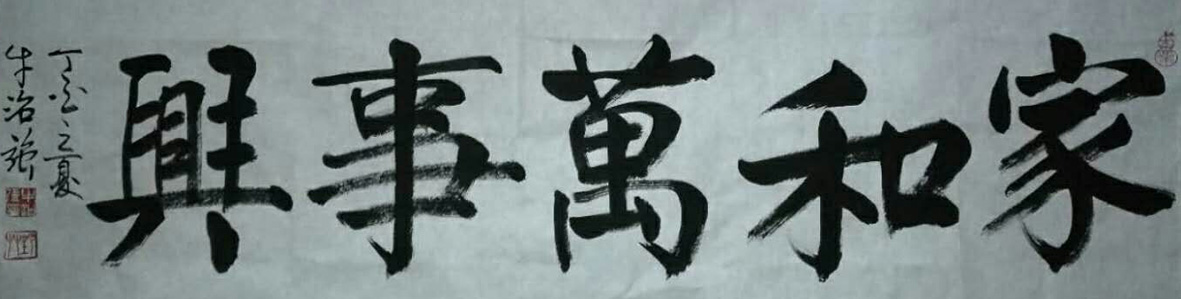 家和萬事興
丁酉之夏
牛治強